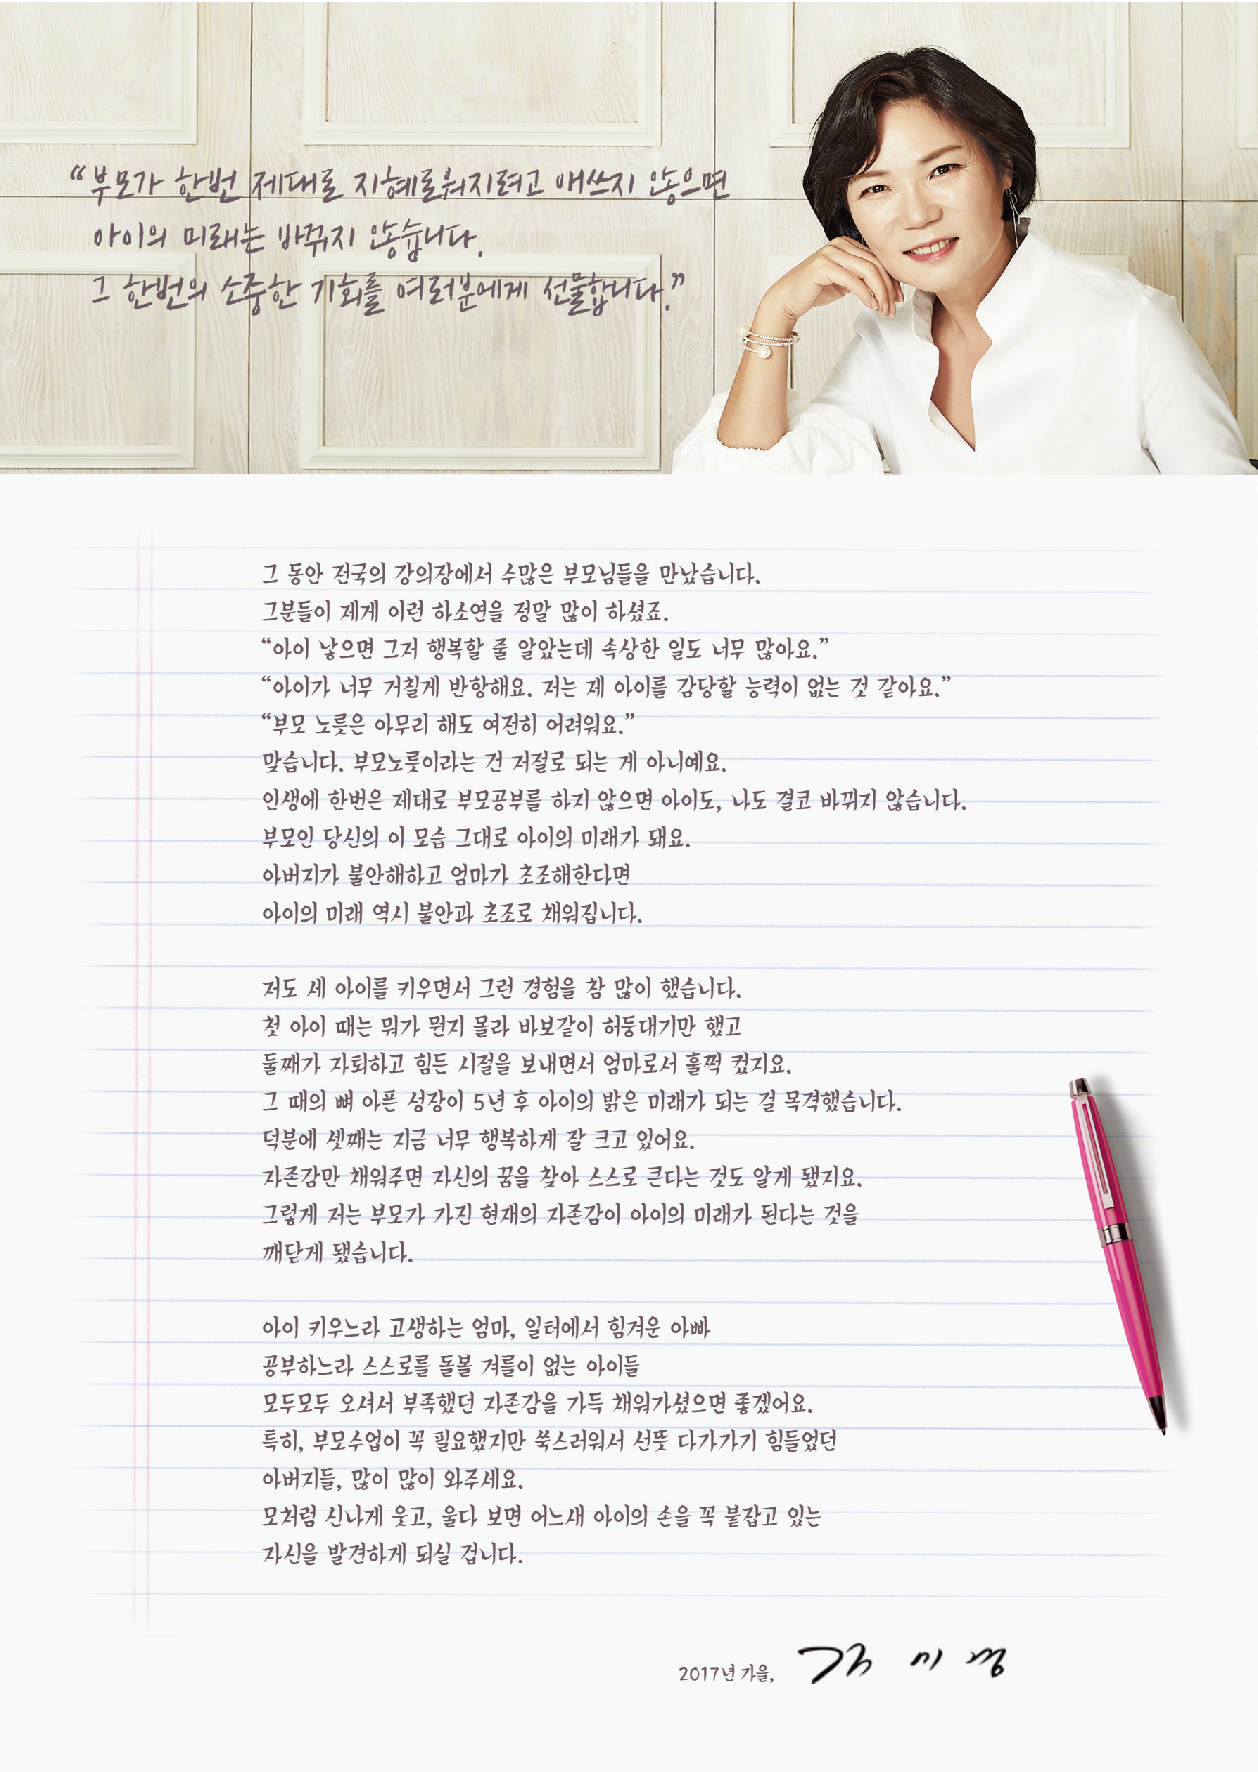 “부모가 한번 제대로 지혜로워지려고 애쓰지 않으면
아이의 미래는 바뀌지 않습니다.
그 한번의 소중한 기회를 여러분에게 선물합니다.”
그 동안 전국의 강의장에서 수많은 부모님들을 만났습니다.
그분들이 제게 이런 하소연을 정말 많이 하셨죠.
“아이 낳으면 그저 행복할 줄 알았는데 속상한 일도 너무 많아요.”
“아이가 너무 거칠게 반항해요. 저는 제 아이를 감당할 능력이 없는 것 같아요.”
“부모 노릇은 아무리 해도 여전히 어려워요.”
맞습니다. 부모노릇이라는 건 저절로 되는 게 아니예요.
인생에 한번은 제대로 부모공부를 하지 않으면 아이도, 나도 결코 바뀌지 않습니다.
부모인 당신의 이 모습 그대로 아이의 미래가 돼요.
아버지가 불안해하고 엄마가 초조해한다면
아이의 미래 역시 불안과 초조로 채워집니다.
저도 세 아이를 키우면서 그런 경험을 참 많이 했습니다.
첫 아이 때는 뭐가 뭔지 몰라 바보같이 허둥대기만 했고
둘째가 자퇴하고 힘든 시절을 보내면서 엄마로서 훌쩍 컸지요.
그 때의 뼈 아픈 성장이 5년 후 아이의 밝은 미래가 되는 걸 목격했습니다.
덕분에 셋째는 지금 너무 행복하게 잘 크고 있어요.
자존감만 채워주면 자신의 꿈을 찾아 스스로 큰다는 것도 알게 됐지요.
그렇게 저는 부모가 가진 현재의 자존감이 아이의 미래가 된다는 것을
깨닫게 됐습니다.
아이 키우느라 고생하는 엄마, 일터에서 힘겨운 아빠
공부하느라 스스로를 돌볼 겨를이 없는 아이들
모두모두 오셔서 부족했던 자존감을 가득 채워가셨으면 좋겠어요.
특히, 부모수업이 꼭 필요했지만 쑥스러워서 선뜻 다가가기 힘들었던
아버지들, 많이 많이 와주세요.
모처럼 신나게 웃고, 울다 보면 어느새 아이의 손을 꼭 붙잡고 있는
자신을 발견하게 되실 겁니다.
2017년 가을,